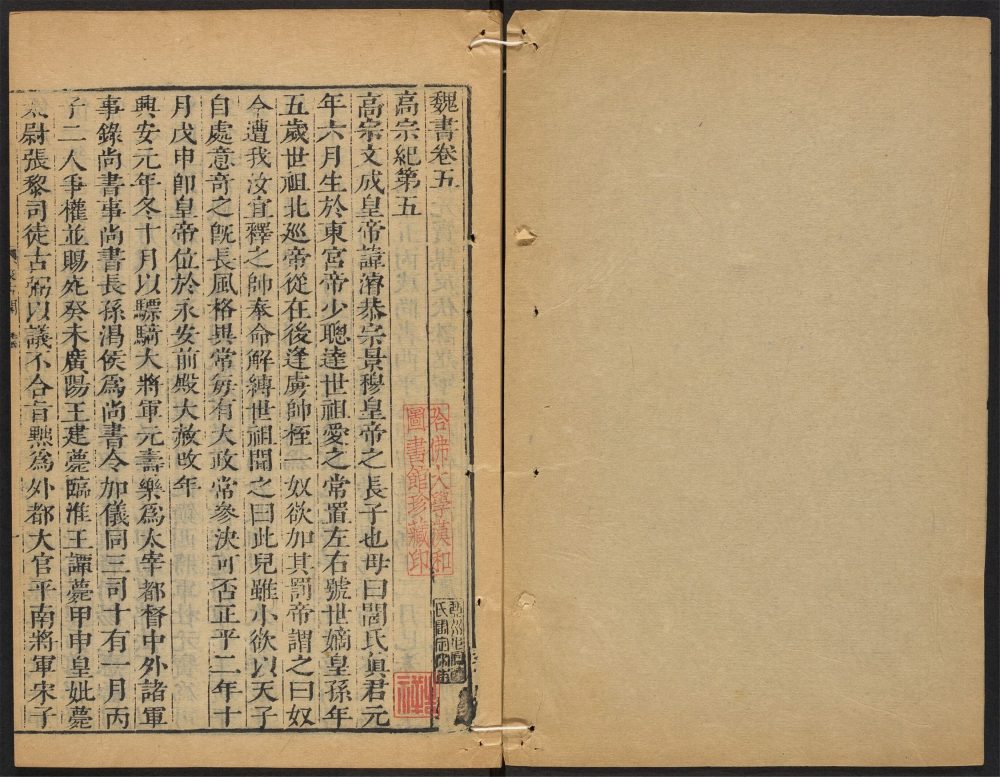 魏書卷五
高宗紀第五
高宗文成皇帝諱濬恭宗景穆皇帝之長子也母曰閭氏眞君元
年六月生於東宮帝少聰達世祖愛之常置左右號世嫡皇孫年
五歲世祖北巡帝從在後逢虜帥桎一奴欲加其罰帝謂之曰奴
今遭我汝宜釋之帥奉命解縛世祖聞之曰此兒雖小欲以天子
自處意奇之旣長風格異常每有大政常參決可否正平二年十
月戊申卽皇帝位於永安前殿大赦改年
興安元年冬十月以驃騎大將軍元壽樂爲太宰都督中外諸軍
事錄尚書事尚書長孫渴侯爲尚書令加儀同三司十有一月丙
子二人爭權並賜死癸未廣陽王建薨臨淮王譚薨甲申皇妣薨
太尉張黎司徒古弼以議不合旨黜爲外都大官平南將軍宋子
哈佛大學漢和
圖書館珍藏印